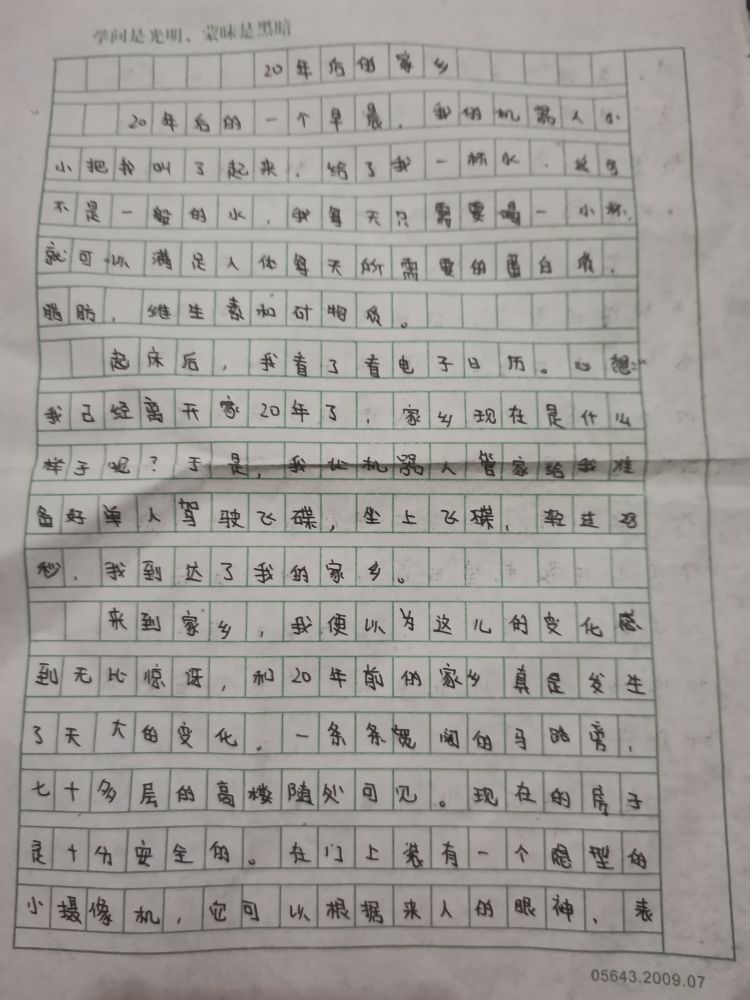 学问是光明，蒙昧是黑暗
20年后的家乡
20年后的一个早晨，我的机器人小
小把我叫了起来，给了我一杯水，这可
不是一般的水，我每天只需要喝一小杯，
就可以满足人体每天所需要的蛋白质，
脂肪，维生素和矿物质。
起床后，我看了看电子日历。心想：
我已经离开家20年了，家乡现在是什么
样子呢？于是，我让机器人管家给我准
备好单人驾驶飞碟，坐上飞碟，轻过
秒，我到达了我的家乡。
来到家乡，我便以为这儿的变化感
到无比惊讶，和20年前的家乡真是发生
了天大的变化。一条条宽阔的马路旁，
七十多层的高楼随处可见。现在的房子
是十分安全的。在门上装有一个隐型的
小摄像机，它可以根据来人的眼神、表
05643.2009.07